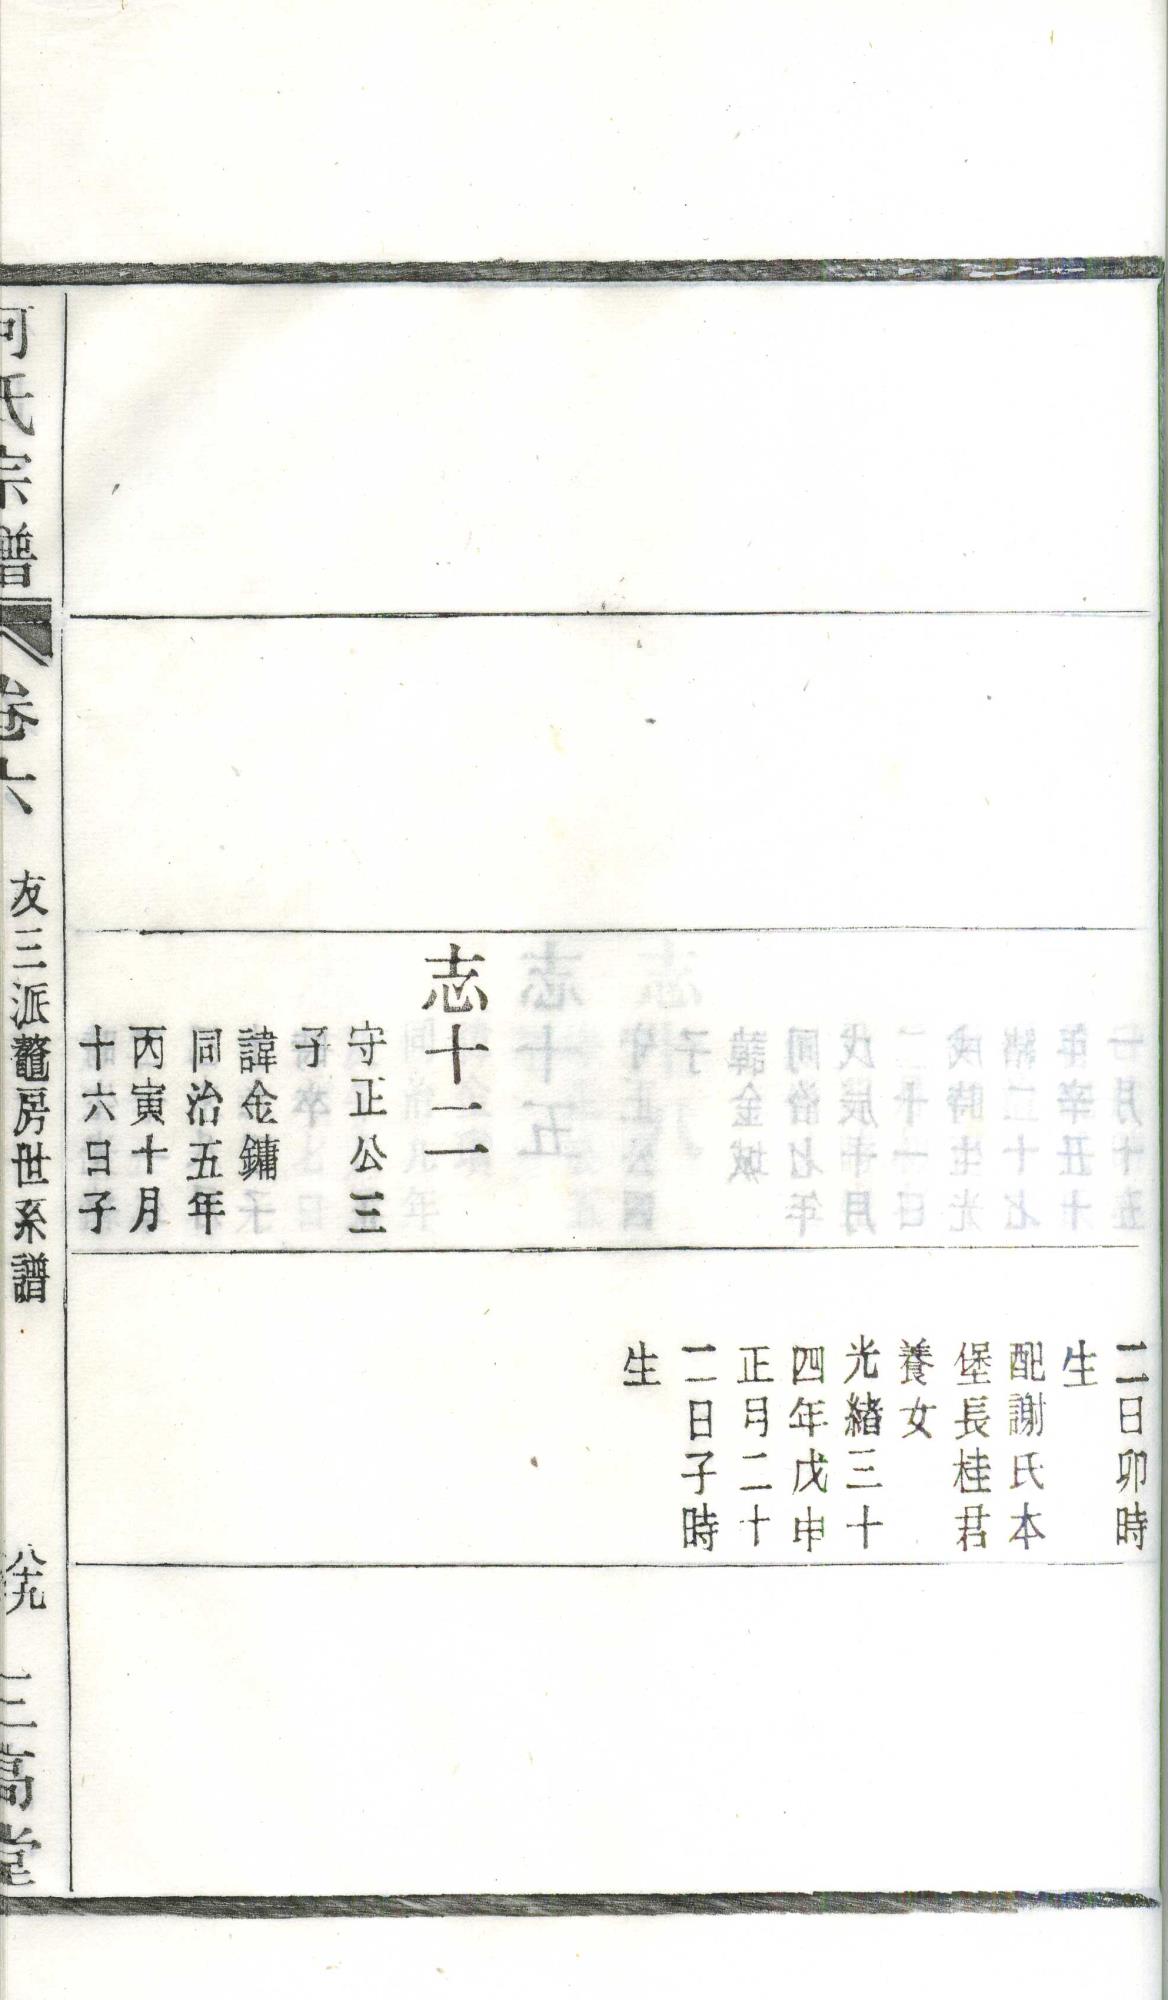 志十二
守正公三
子
諱金鏞
同治五年
丙寅十月
十六日子
二日卯時
生
配謝氏本
堡長桂君
養女
光緒三十
四年戊申
正月二十
二日子時
生
何氏宗譜
卷六
友三派鼇房世系譜
八十九
三高堂